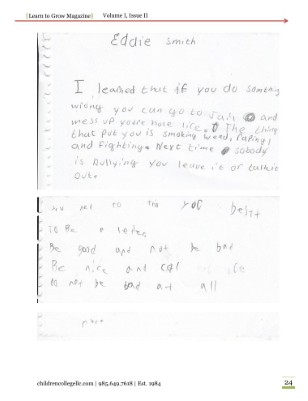 [Learn to Grow Magazine] Volume I, Issue II
Eddie Smith
I learned that if you do somthing
wrong you can go to Jail and
mess up youre hole life. The thing
that put you is smoking weed, raping,
and fighting. Next time sobody
is bullying you leave it or talkit
out.
to the you best
to Be a
Be good and not be bad
Be nice and
to not be bad at all
childrencollegefir.com | 985.649.7618 | Est. 1984
24